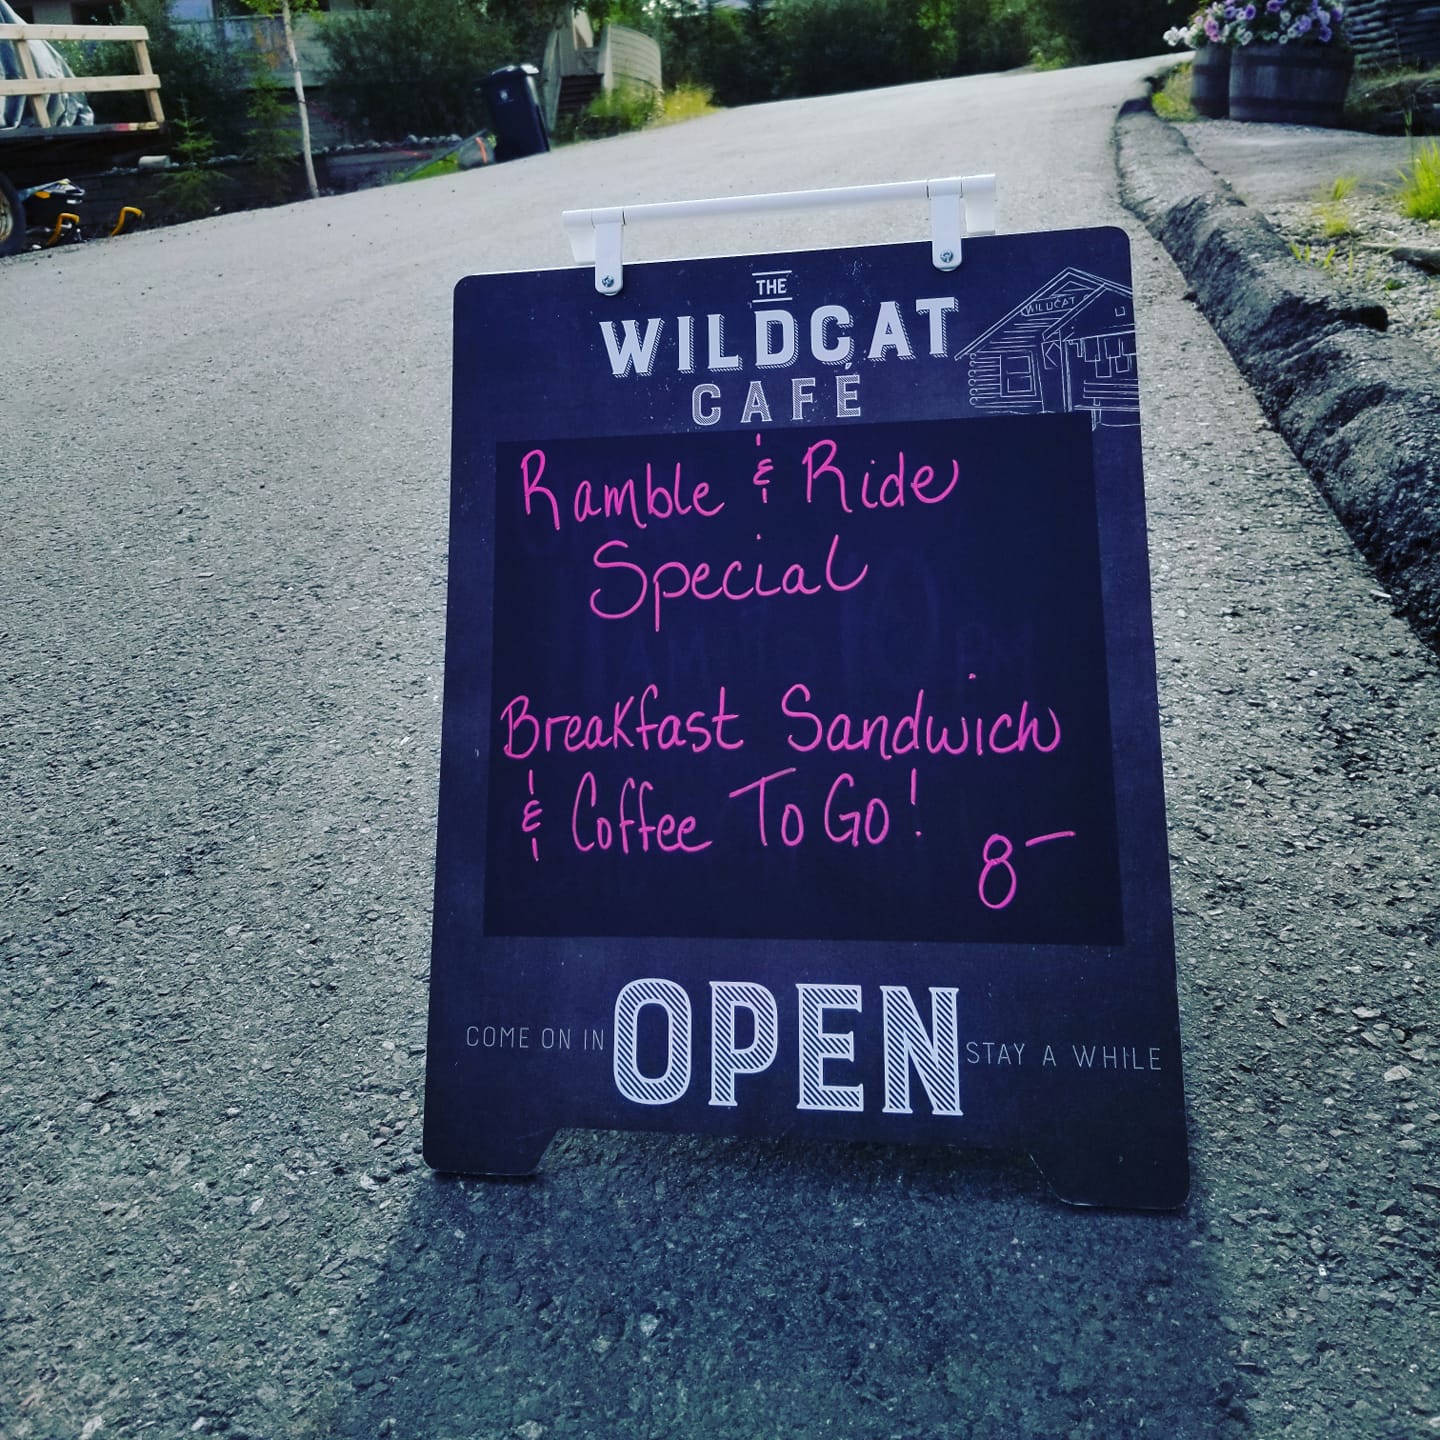 THE
WILDCAT
CAFÉ
WILDCAT
Ramble & Ride
Special
Breakfast Sandwich
& Coffee To Go!
8—
COME ON IN OPEN STAY A WHILE